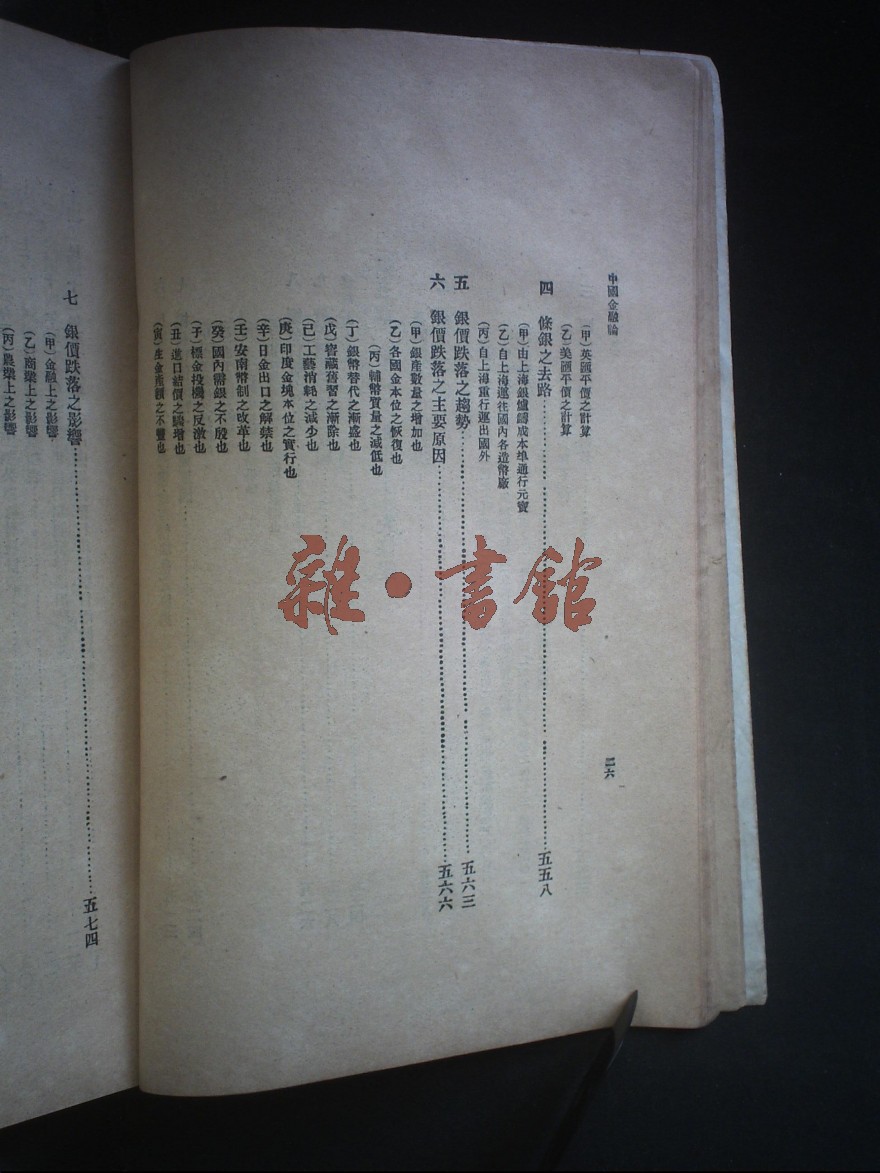 中國金融論
三六
(甲)英國平價之計算
(乙)美國平價之計算
四 條銀之去路……五五八
(甲)由上海銀爐鑄成本埠通行元寶
(乙)自上海運往國內各造幣廠
(丙)自上海重行運出國外
五 銀價跌落之趨勢……五六三
六 銀價跌落之主要原因……五六六
(甲)銀產數量之增加也
(乙)各國金本位之恢復也
(丙)輔幣質量之減低也
(丁)銀幣替代之漸盛也
(戊)窖藏舊習之漸除也
(己)工藝消耗之減少也
(庚)印度金塊本位之實行也
(辛)日金出口之解禁也
(壬)安南幣制之改革也
(癸)國內需銀之不殷也
(子)標金投機之反激也
(丑)進口結價之驟增也
(寅)生金產額之不豐也
七 銀價跌落之影響……五七四
(甲)金融上之影響
(乙)商業上之影響
(丙)農業上之影響
雜·書館